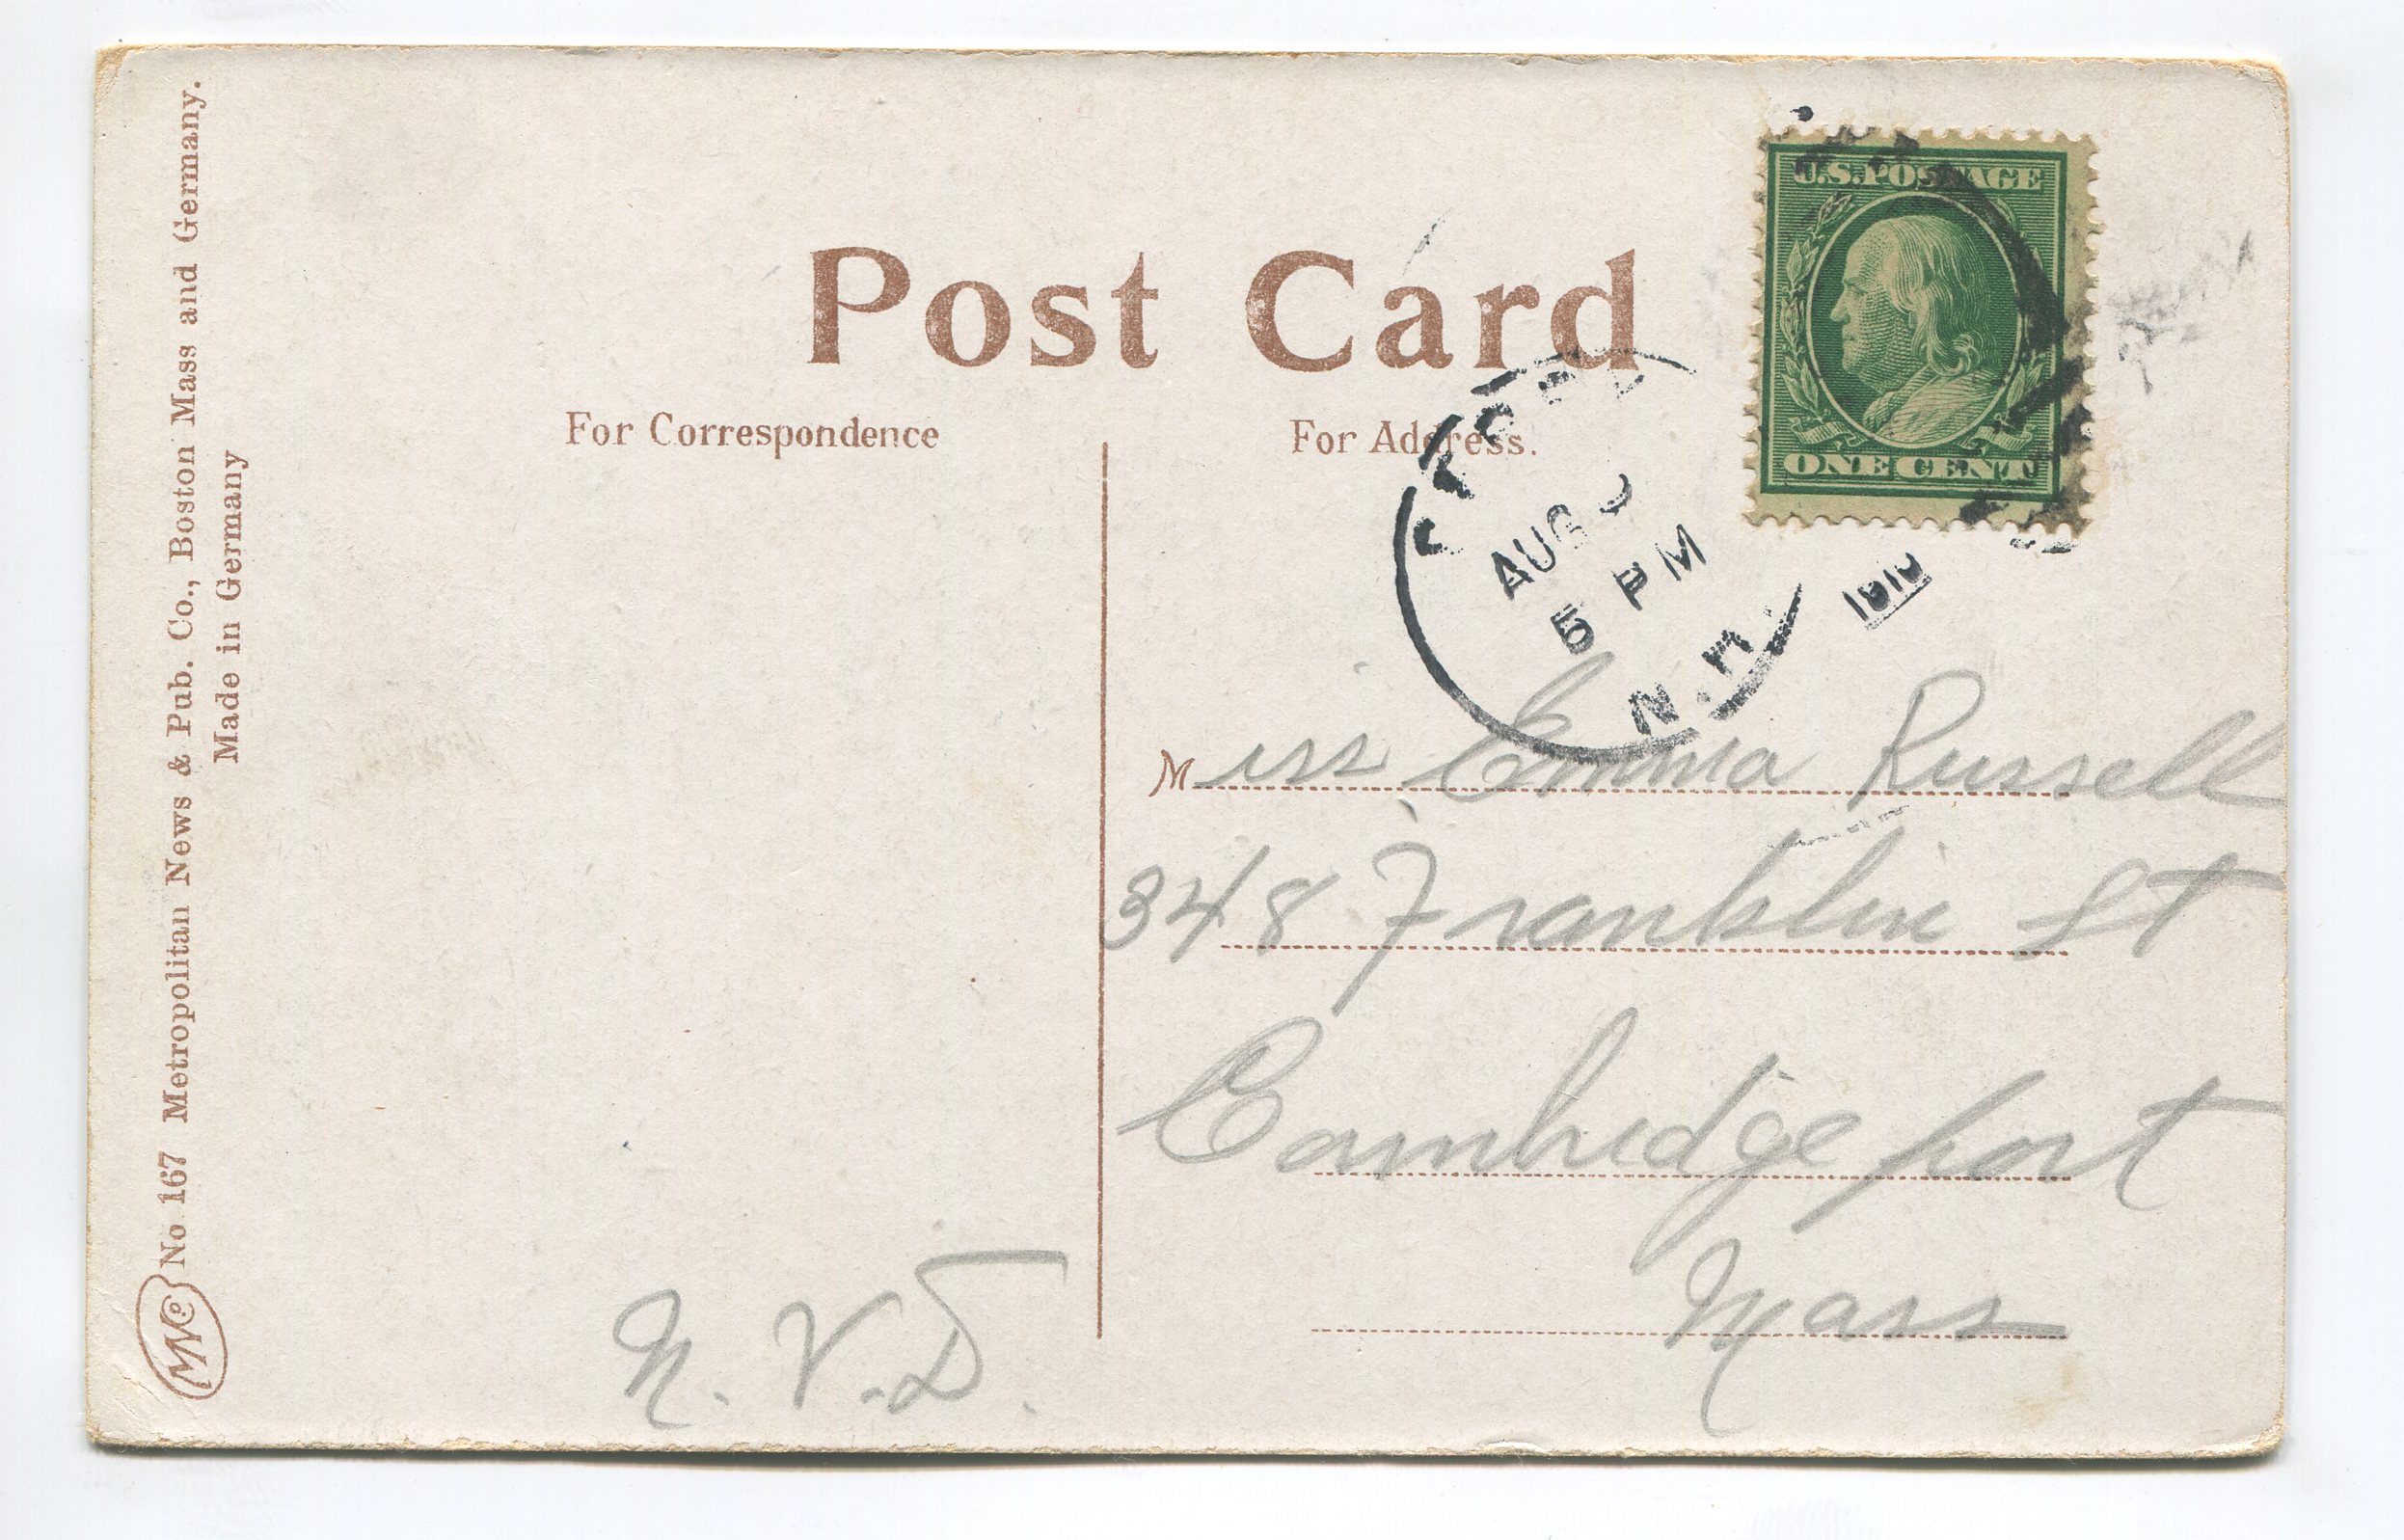 No 167 Metropolitan News & Pub. Co., Boston Mass and Germany.
Made in Germany
Post Card
For Correspondence
For Address.
U.S. POSTAGE
ONE CENT
AUG
5 PM
N.H.
Miss Emma Russell
348 Franklin St
Cambridgeport
Mass
N.V.D.